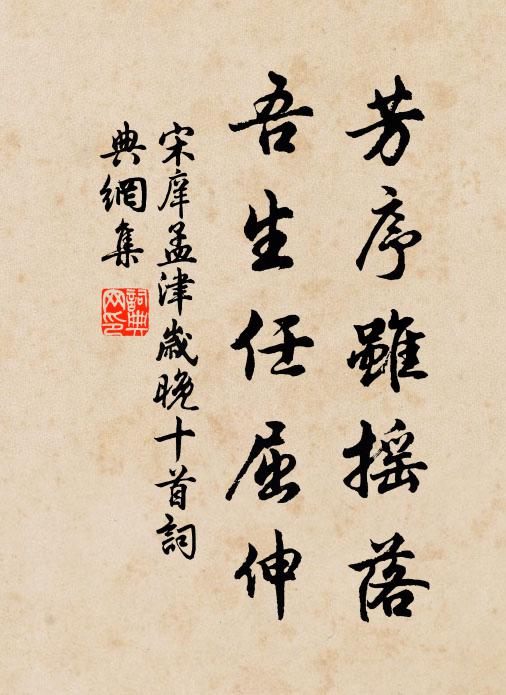 芳序雖摇落
吾生任屈伸
宋庠孟津歲晚十首詞
典網集
詞典
网印